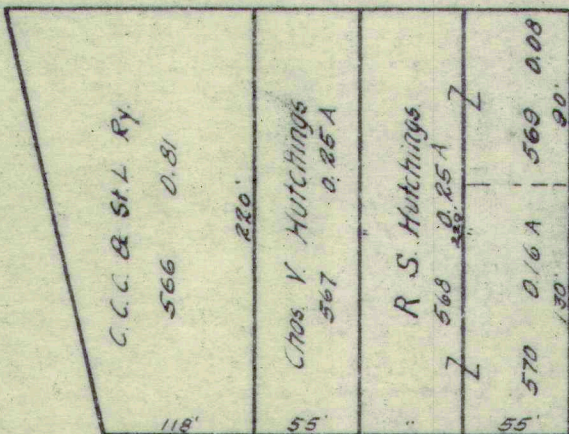 C.C.C. & St. L Ry.
566 0.81
220'
118'
Chas V. Hutchings
567 0.25 A
55'
"
R S. Hutchings
568 0.25 A
220'
"
570 0.16 A
130'
569 0.08
90'
55'